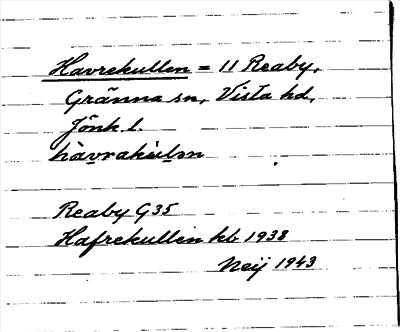 Havrekullen = 11 Reaby,
Gränna sn, Vista hd,
Jönk l.
hàvrakùlən
Reaby G35
Hafrekullen kb 1938
Neij 1943